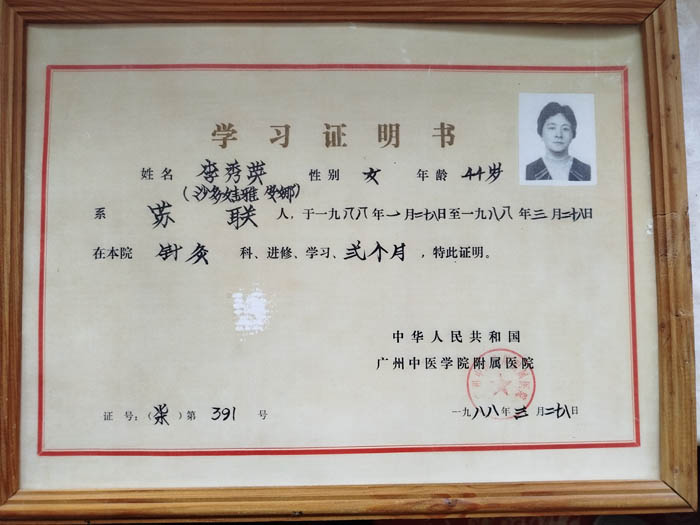 学习证明书
姓名 李秀英 性别 女 年龄 44岁
(沙多娃雅 安娜)
系 苏联 人,于一九八八年一月二十八日至一九八八年三月二十八日
在本院 针灸 科、进修、学习、弍个月,特此证明。
中华人民共和国
广州中医学院附属医院
证号:(柒)第 391 号
一九八八年三月二十八日